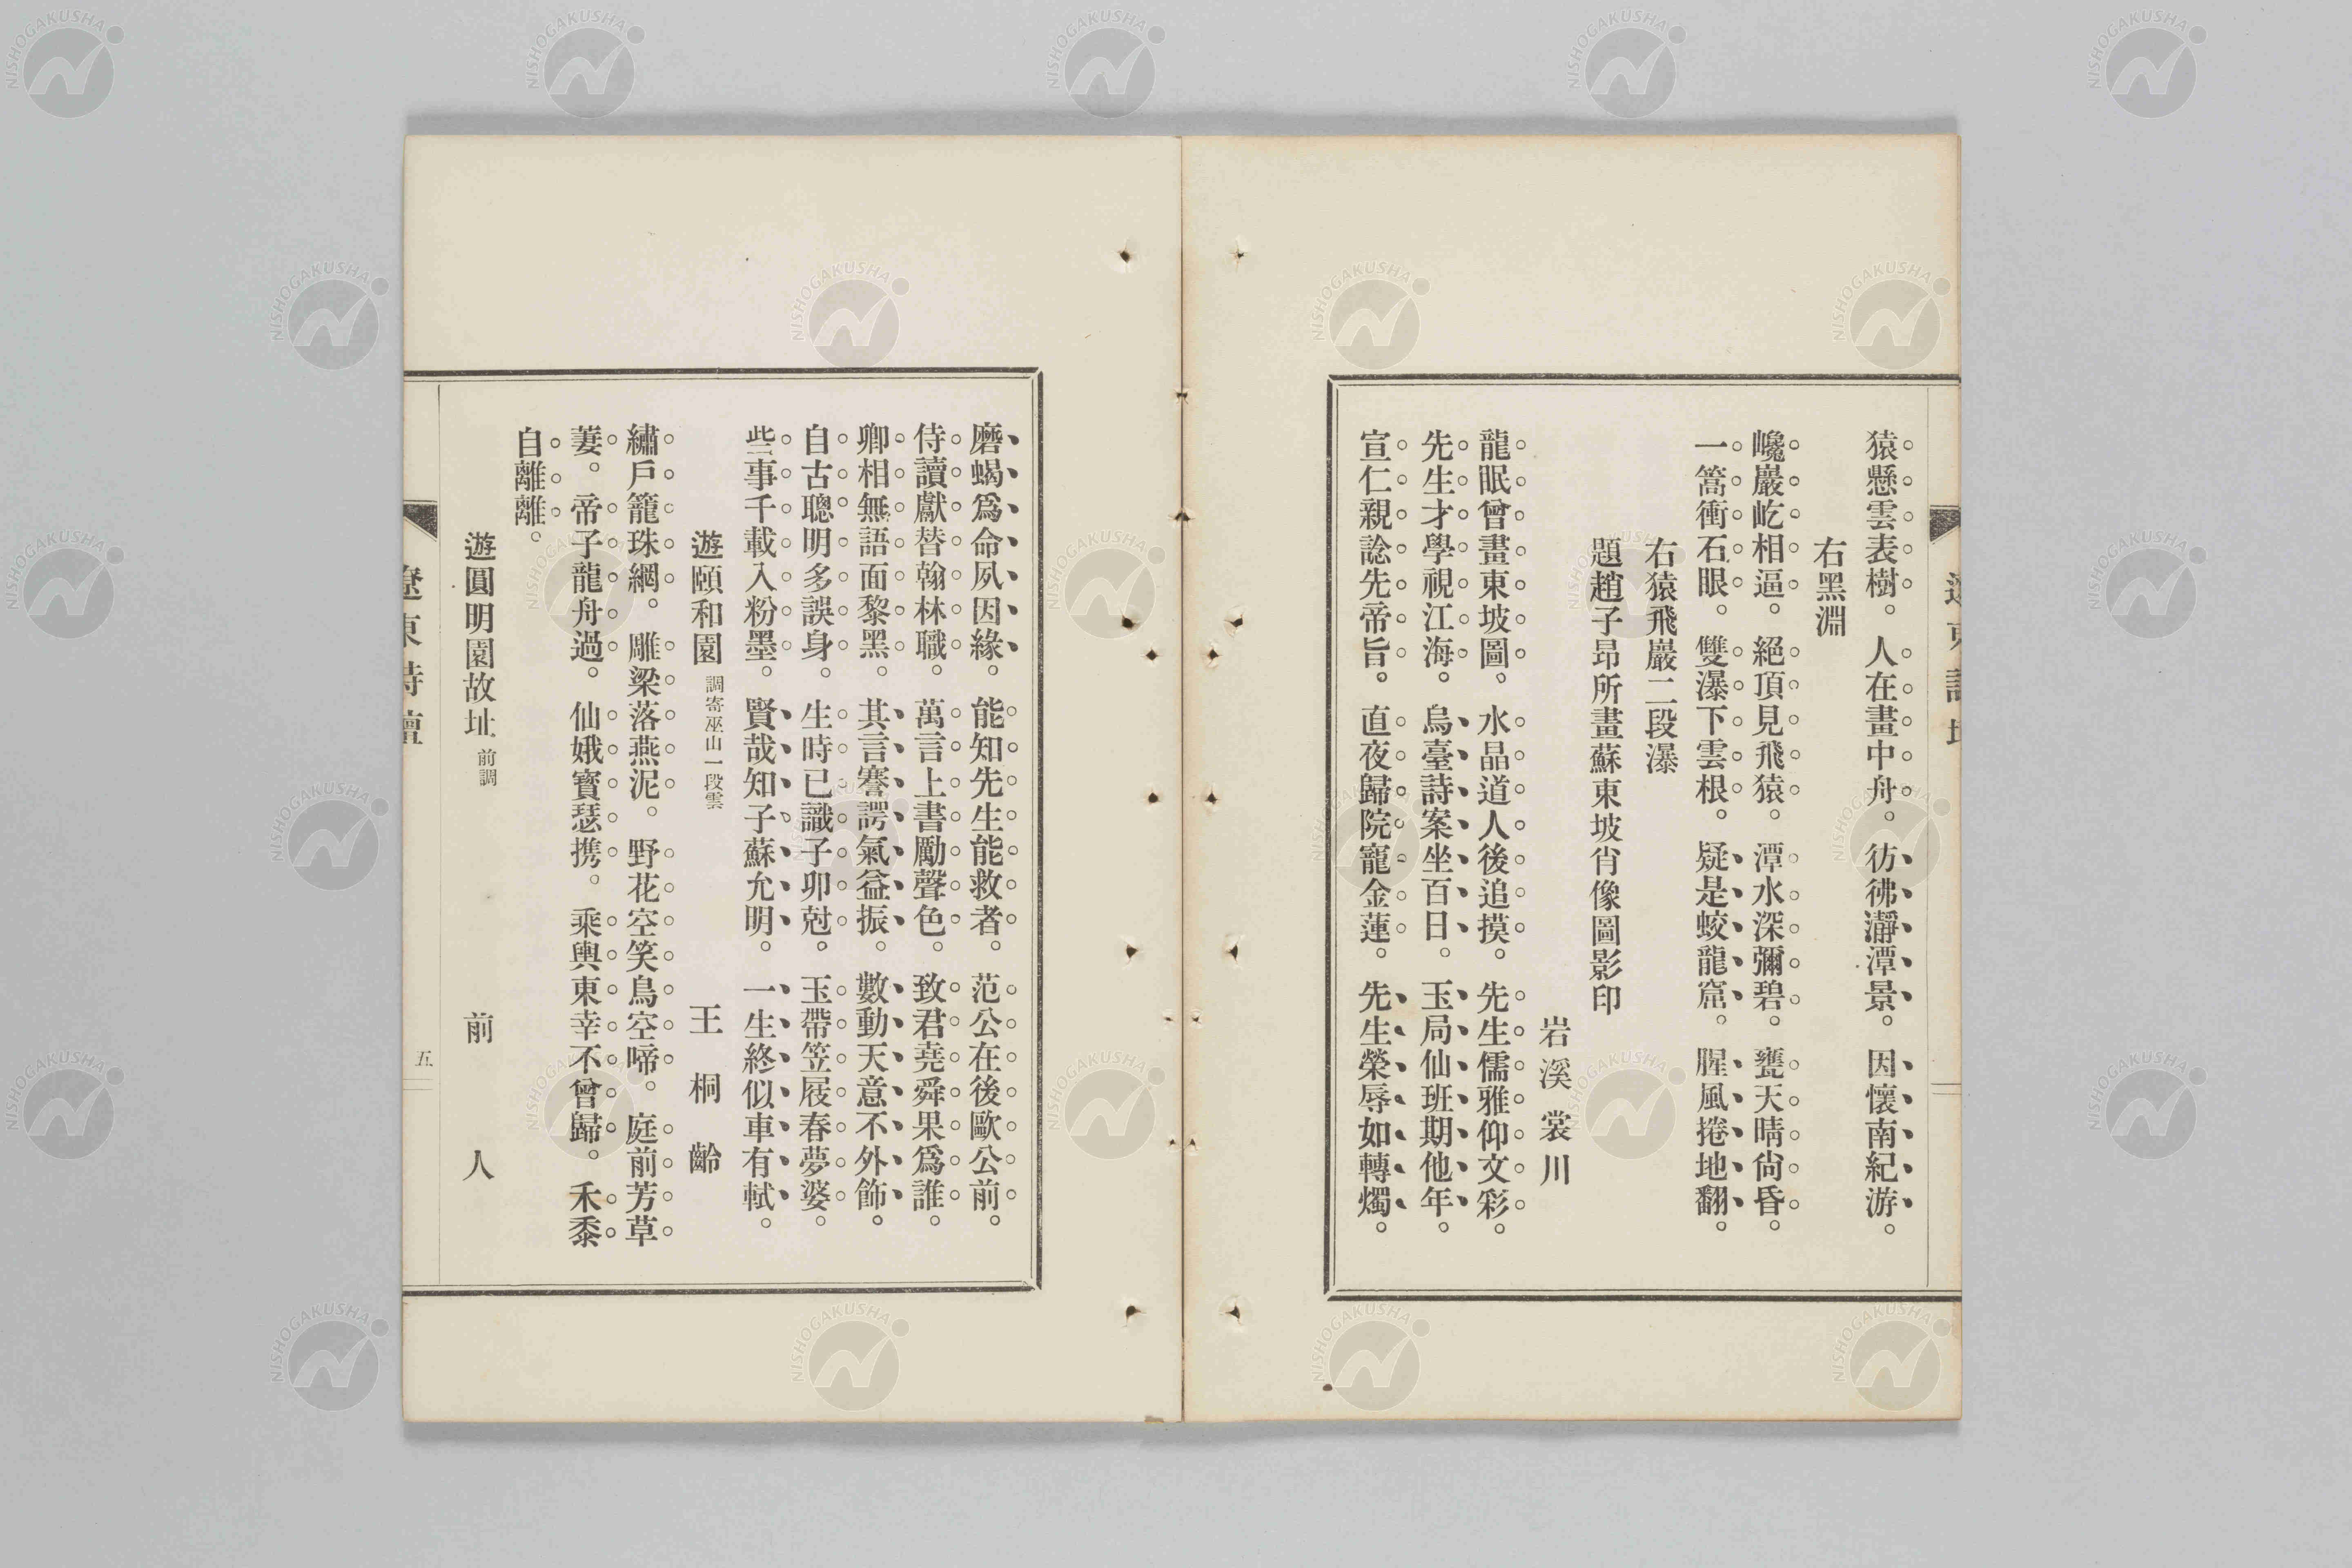 猿懸雲表樹。人在畫中舟。彷彿瀞潭景。因懷南紀游。
右黑淵
巉巖屹相逼。絕頂見飛猿。潭水深彌碧。甕天晴尙昏。
一篙衝石眼。雙瀑下雲根。疑是蛟龍窟。腥風捲地翻。
右猿飛巖二段瀑
題趙子昂所畫蘇東坡肖像圖影印
岩溪裳川
龍眠曾畫東坡圖。水晶道人後追摸。先生儒雅仰文彩。
先生才學視江海。烏臺詩案坐百日。玉局仙班期他年。
宣仁親諗先帝旨。直夜歸院寵金蓮。先生榮辱如轉燭。
磨蝎爲命夙因緣。能知先生能救者。范公在後歐公前。
侍讀獻替翰林職。萬言上書勵聲色。致君堯舜果爲誰。
卿相無語面黎黑。其言謇諤氣益振。數動天意不外飾。
自古聰明多誤身。生時已識子卯尅。玉帶笠屐春夢婆。
些事千載入粉墨。賢哉知子蘇允明。一生終似車有軾。
遊頤和園 調寄巫山一段雲 王桐齡
繡戶籠珠網。雕梁落燕泥。野花空笑鳥空啼。庭前芳草
萋。帝子龍舟過。仙娥寶瑟携。乘輿東幸不曾歸。禾黍
自離離。
遊圓明園故址 前調 前人
遼東詩壇
五